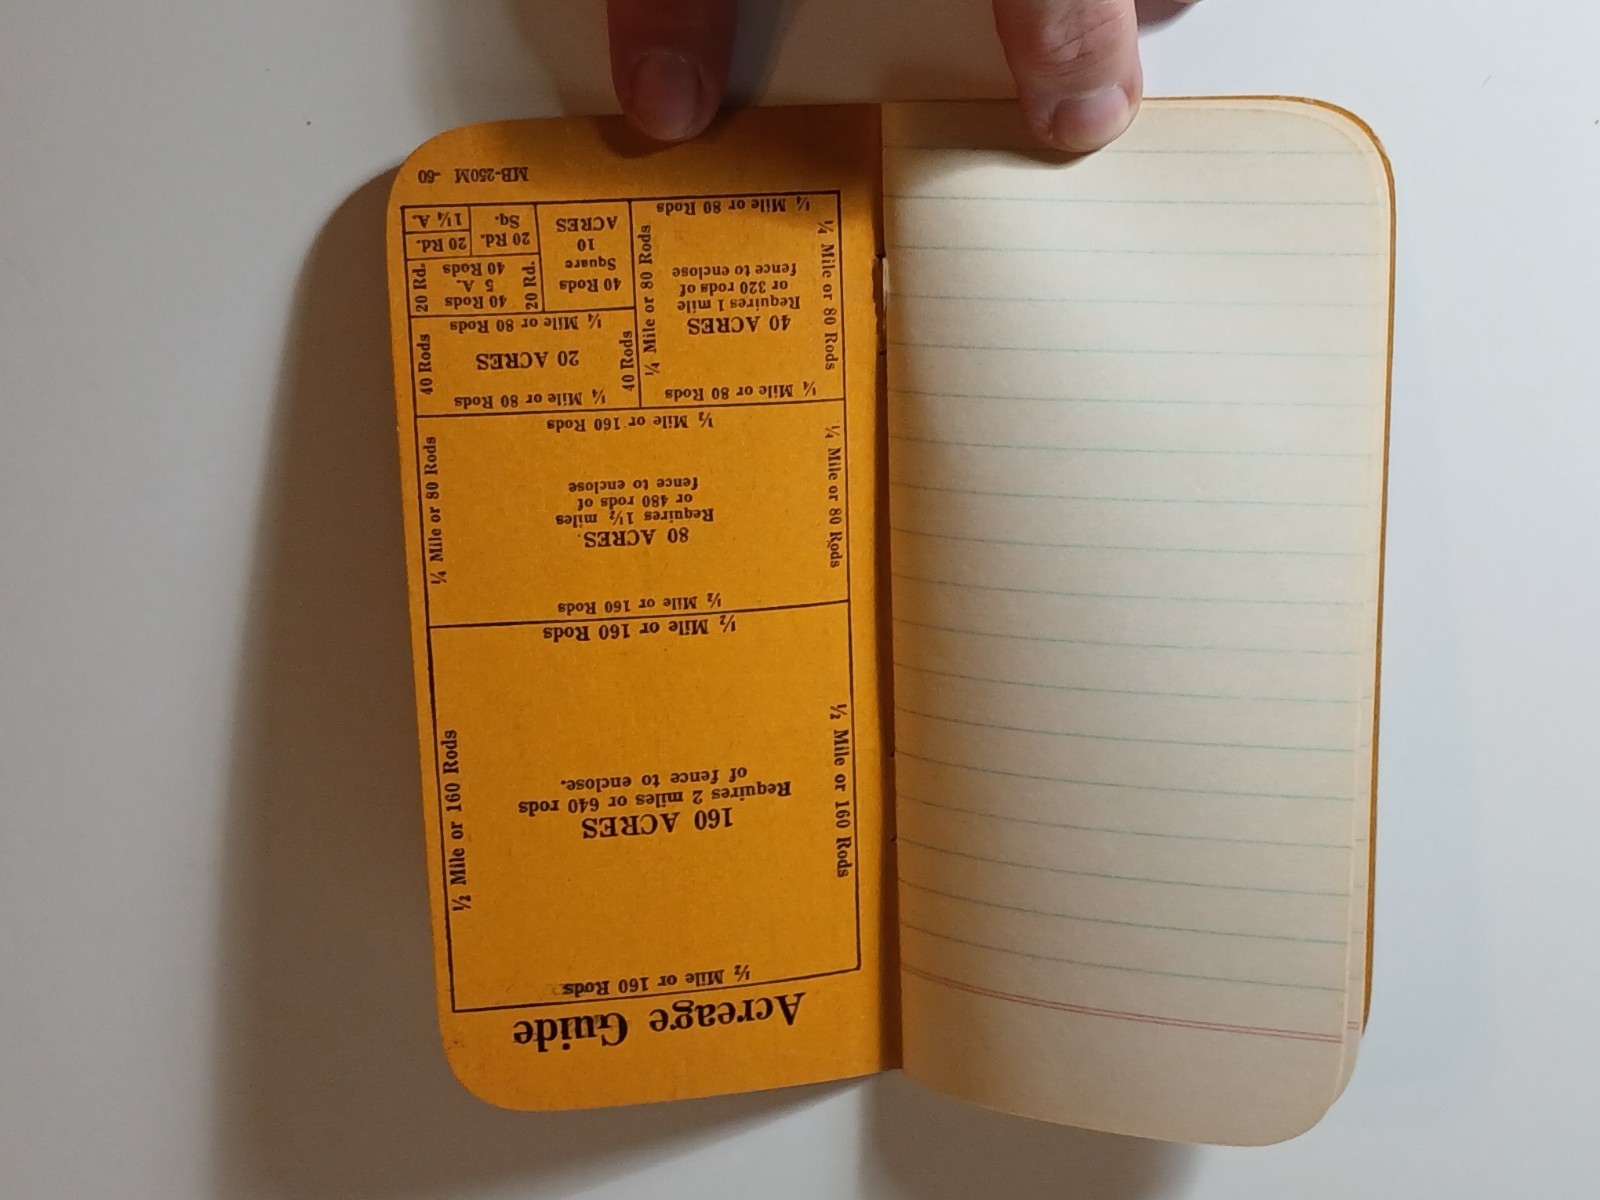 Acreage Guide
½ Mile or 160 Rods
½ Mile or 160 Rods
160 ACRES
Requires 2 miles or 640 rods
of fence to enclose.
½ Mile or 160 Rods
½ Mile or 160 Rods
½ Mile or 160 Rods
¼ Mile or 80 Rods
80 ACRES.
Requires 1½ miles
or 480 rods of
fence to enclose
¼ Mile or 80 Rods
½ Mile or 160 Rods
¼ Mile or 80 Rods
¼ Mile or 80 Rods
40 ACRES
Requires 1 mile
or 320 rods of
fence to enclose
¼ Mile or 80 Rods
¼ Mile or 80 Rods
¼ Mile or 80 Rods
40 Rods
20 ACRES
40 Rods
¼ Mile or 80 Rods
40 Rods
Square
10
ACRES
20 Rd.
40 Rods
5 A.
40 Rods
20 Rd.
20 Rd.
Sq.
20 Rd.
1¼ A.
MB-250M -60